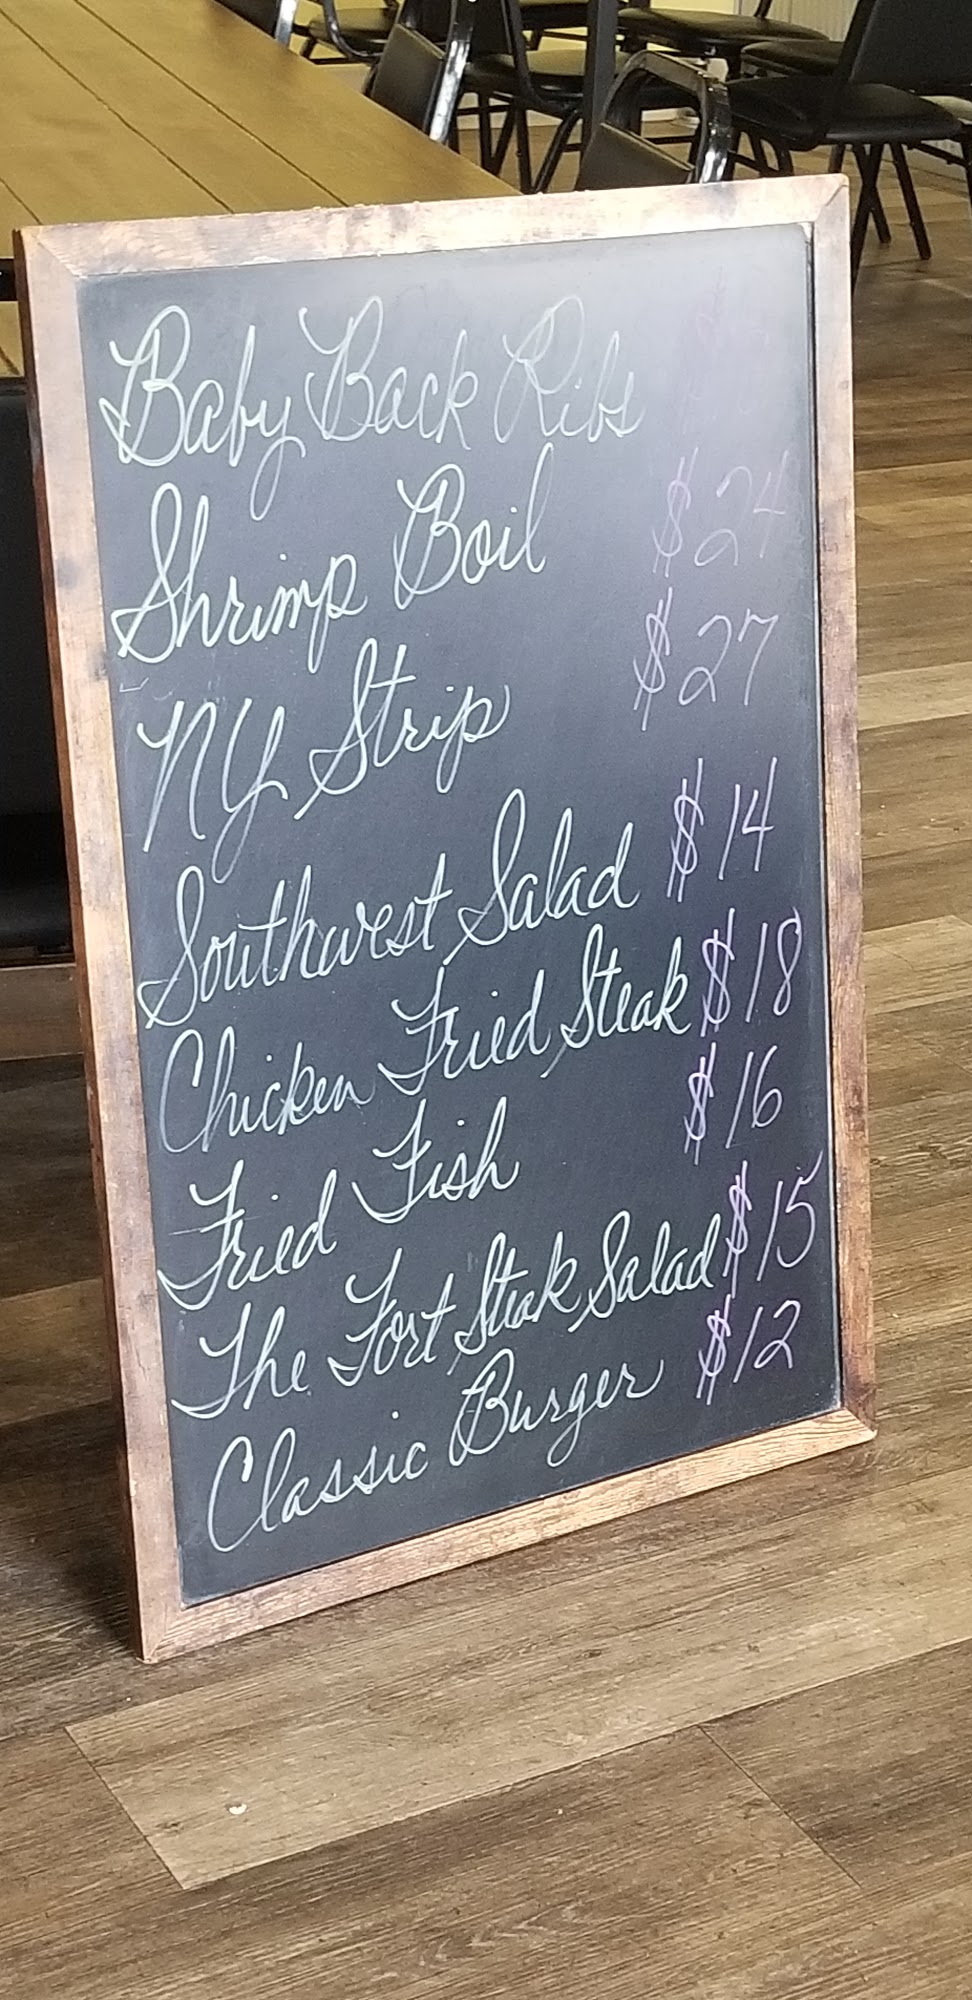 Baby Back Ribs
Shrimp Boil $24
NY Strip $27
Southwest Salad $14
Chicken Fried Steak $18
Fried Fish $16
The Fort Steak Salad $15
Classic Burger $12